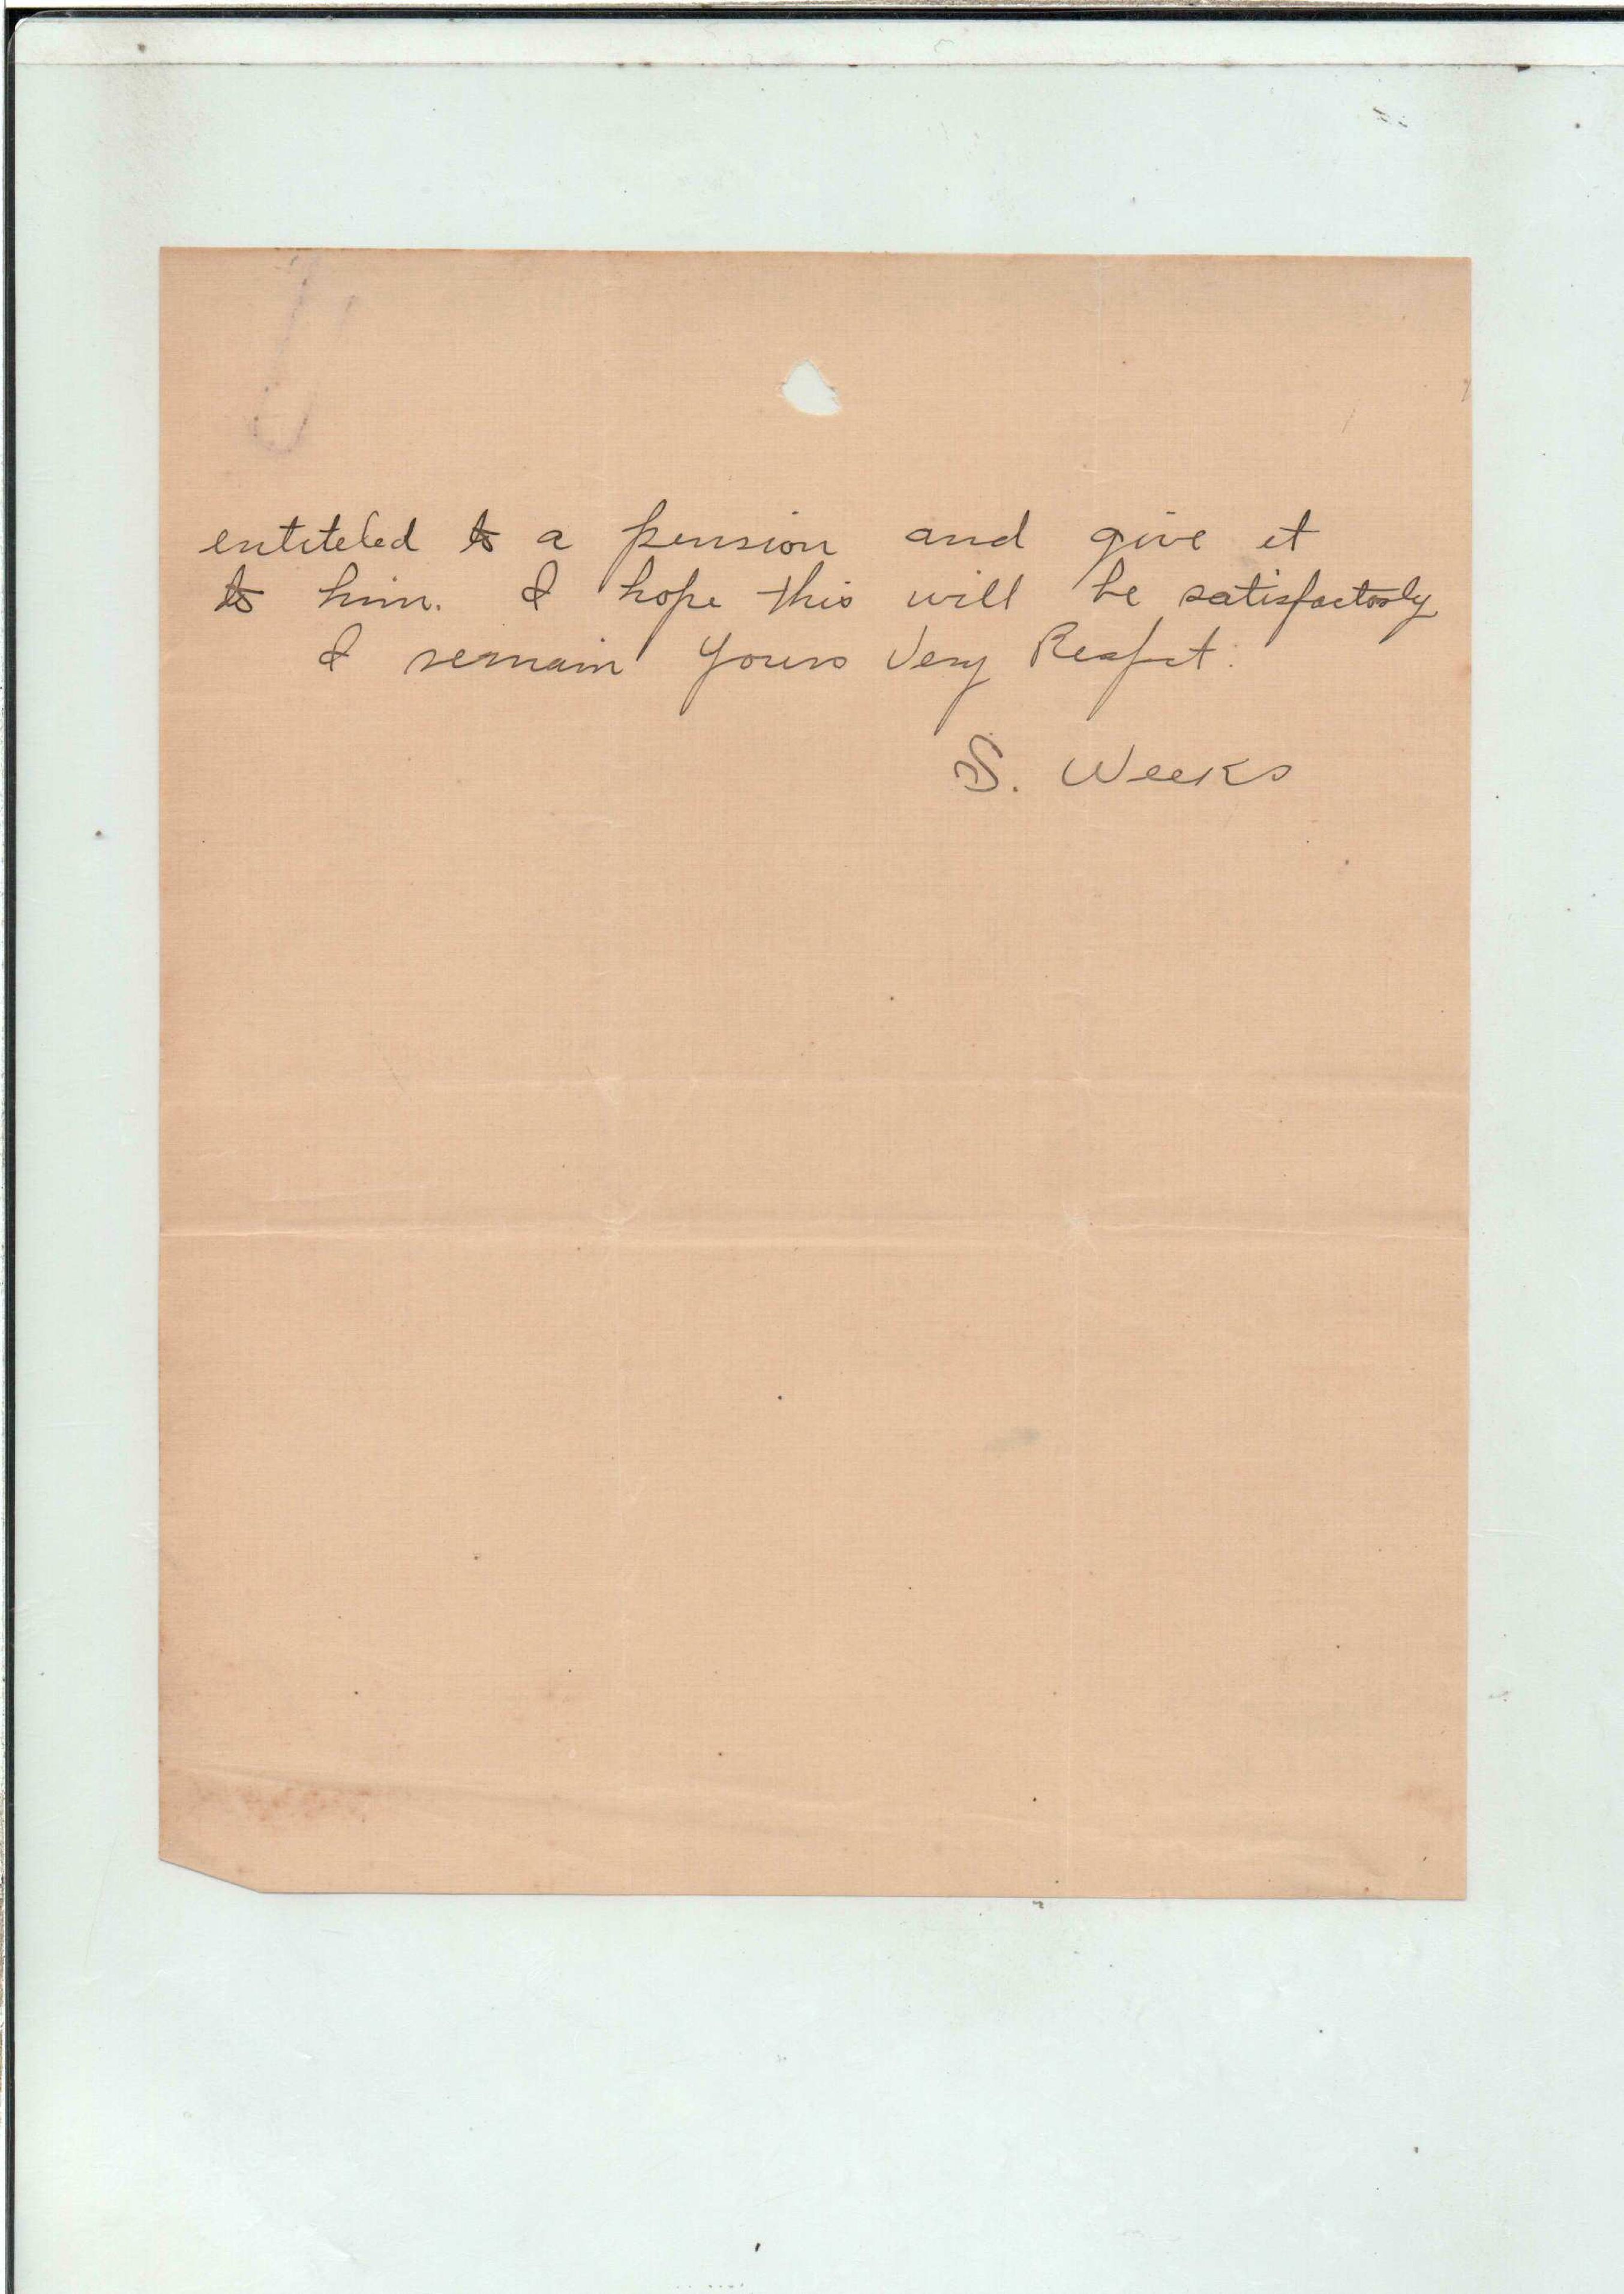 entiteled to a pension and give it
to him. I hope this will be satisfactorly
I remain Yours Very Respct.
S. Weeks